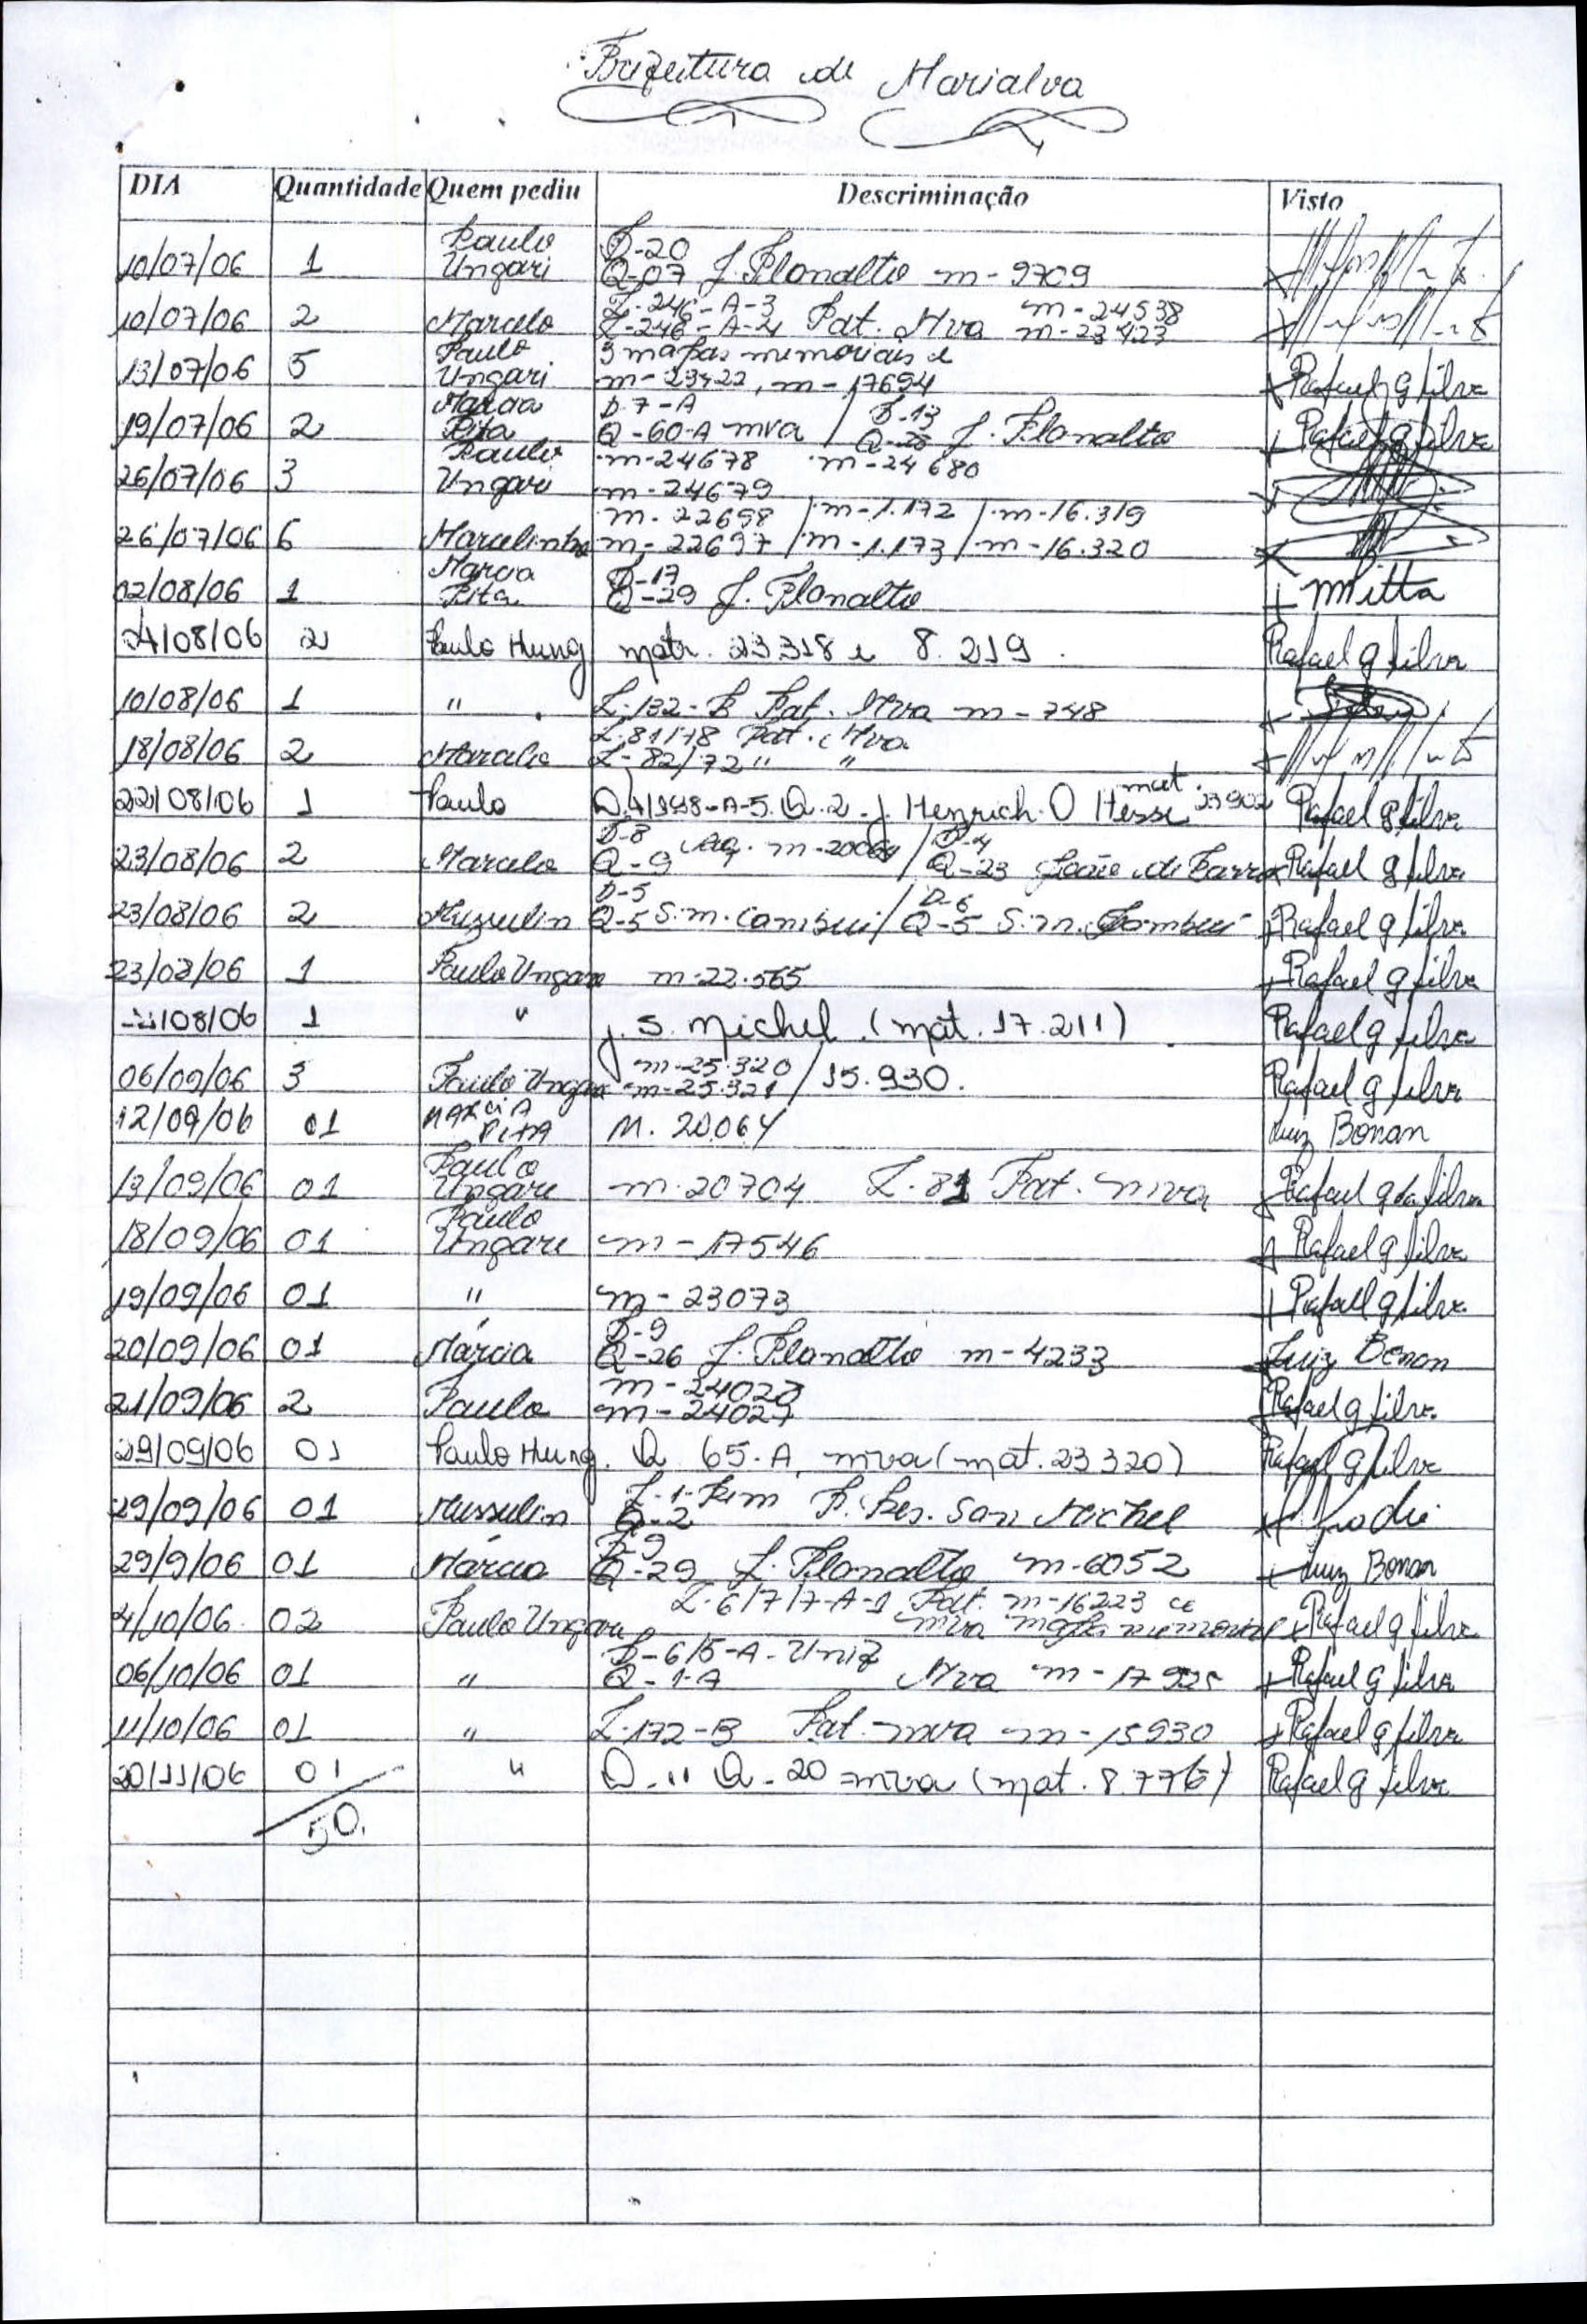 Prefeitura de Marialva
DIA Quantidade Quem pediu Descriminação Visto
10/07/06 1 Paulo Ungari D-20 Q-07 J. Planalto m-9709
10/07/06 2 Marcelo L-246-A-3 L-246-A-4 Pat. Mva m-24538 m-23423
13/07/06 5 Paulo Ungari 3 mapas memoriais e m-23422, m-17694 Rafael G Silva
19/07/06 2 Marcia Rita D.7-A Q-60-A mva / D-13 Q-28 J. Planalto Rafael G Silva
26/07/06 3 Paulo Ungari m-24678 m-24680 m-24679
26/07/06 6 Marcelinho m-22698 / m-1.172 / m-16.319 m-22697 / m-1.173 / m-16.320
02/08/06 1 Marcia Rita D-17 Q-29 J. Planalto
04/08/06 2 Paulo Hung matr. 23318 e 8.219. Rafael G Silva
10/08/06 1 " L-132-B Pat. Mva m-748
18/08/06 2 L-81/78 Pat. Mva L-82/72 " "
22/08/06 1 Paulo Q.2 - J. Henrich. O Hesse mat. 23902 Rafael G Silva
23/08/06 2 Marcelo D-8 Q-9 Aq. m-20064 / D-4 Q-23 João de Barro Rafael G Silva
23/08/06 2 Mussulin D-5 Q-5 S.m. Cambui / D-6 Q-5 S.m. Cambui Rafael G Silva
23/08/06 1 Paulo Ungari m-22.565 Rafael G Silva
/08/06 1 " J. S. Michel. (mat. 17.211) Rafael G Silva
06/09/06 3 Paulo Ungari m-25.320 m-25.321 / 15.930. Rafael G Silva
12/09/06 01 MARCIA RITA M. 20064 Luiz Bonan
13/09/06 01 Paulo Ungari m-20704 L-81 Pat. mva Rafael G da Silva
18/09/06 01 Paulo Ungari m-17546 Rafael G Silva
19/09/06 01 " m-23073 Rafael G Silva
20/09/06 01 Márcia D-9 Q-26 J. Planalto m-4233 Luiz Bonan
21/09/06 2 Paulo m-24028 m-24027 Rafael G Silva
29/09/06 01 Paulo Hung. Q. 65-A, mva (mat. 23320) Rafael G Silva
29/09/06 01 Mussulin L-1-Rem Q-2 P. Res. San Michel
29/9/06 01 Márcia D-9 Q-29 J. Planalto m-6052 Luiz Bonan
4/10/06. 02 Paulo Ungari L-6/7/7-A-1 Pat. mva m-16223 e mapa memorial Rafael G Silva
06/10/06 01 " D-6/5-A-Unif Q-1-A Mva m-17925 Rafael G Silva
11/10/06 01 " L-172-B Pat. mva m-15930 Rafael G Silva
20/11/06 01 " D. 11 Q-20 mva (mat. 8.776) Rafael G Silva
50.